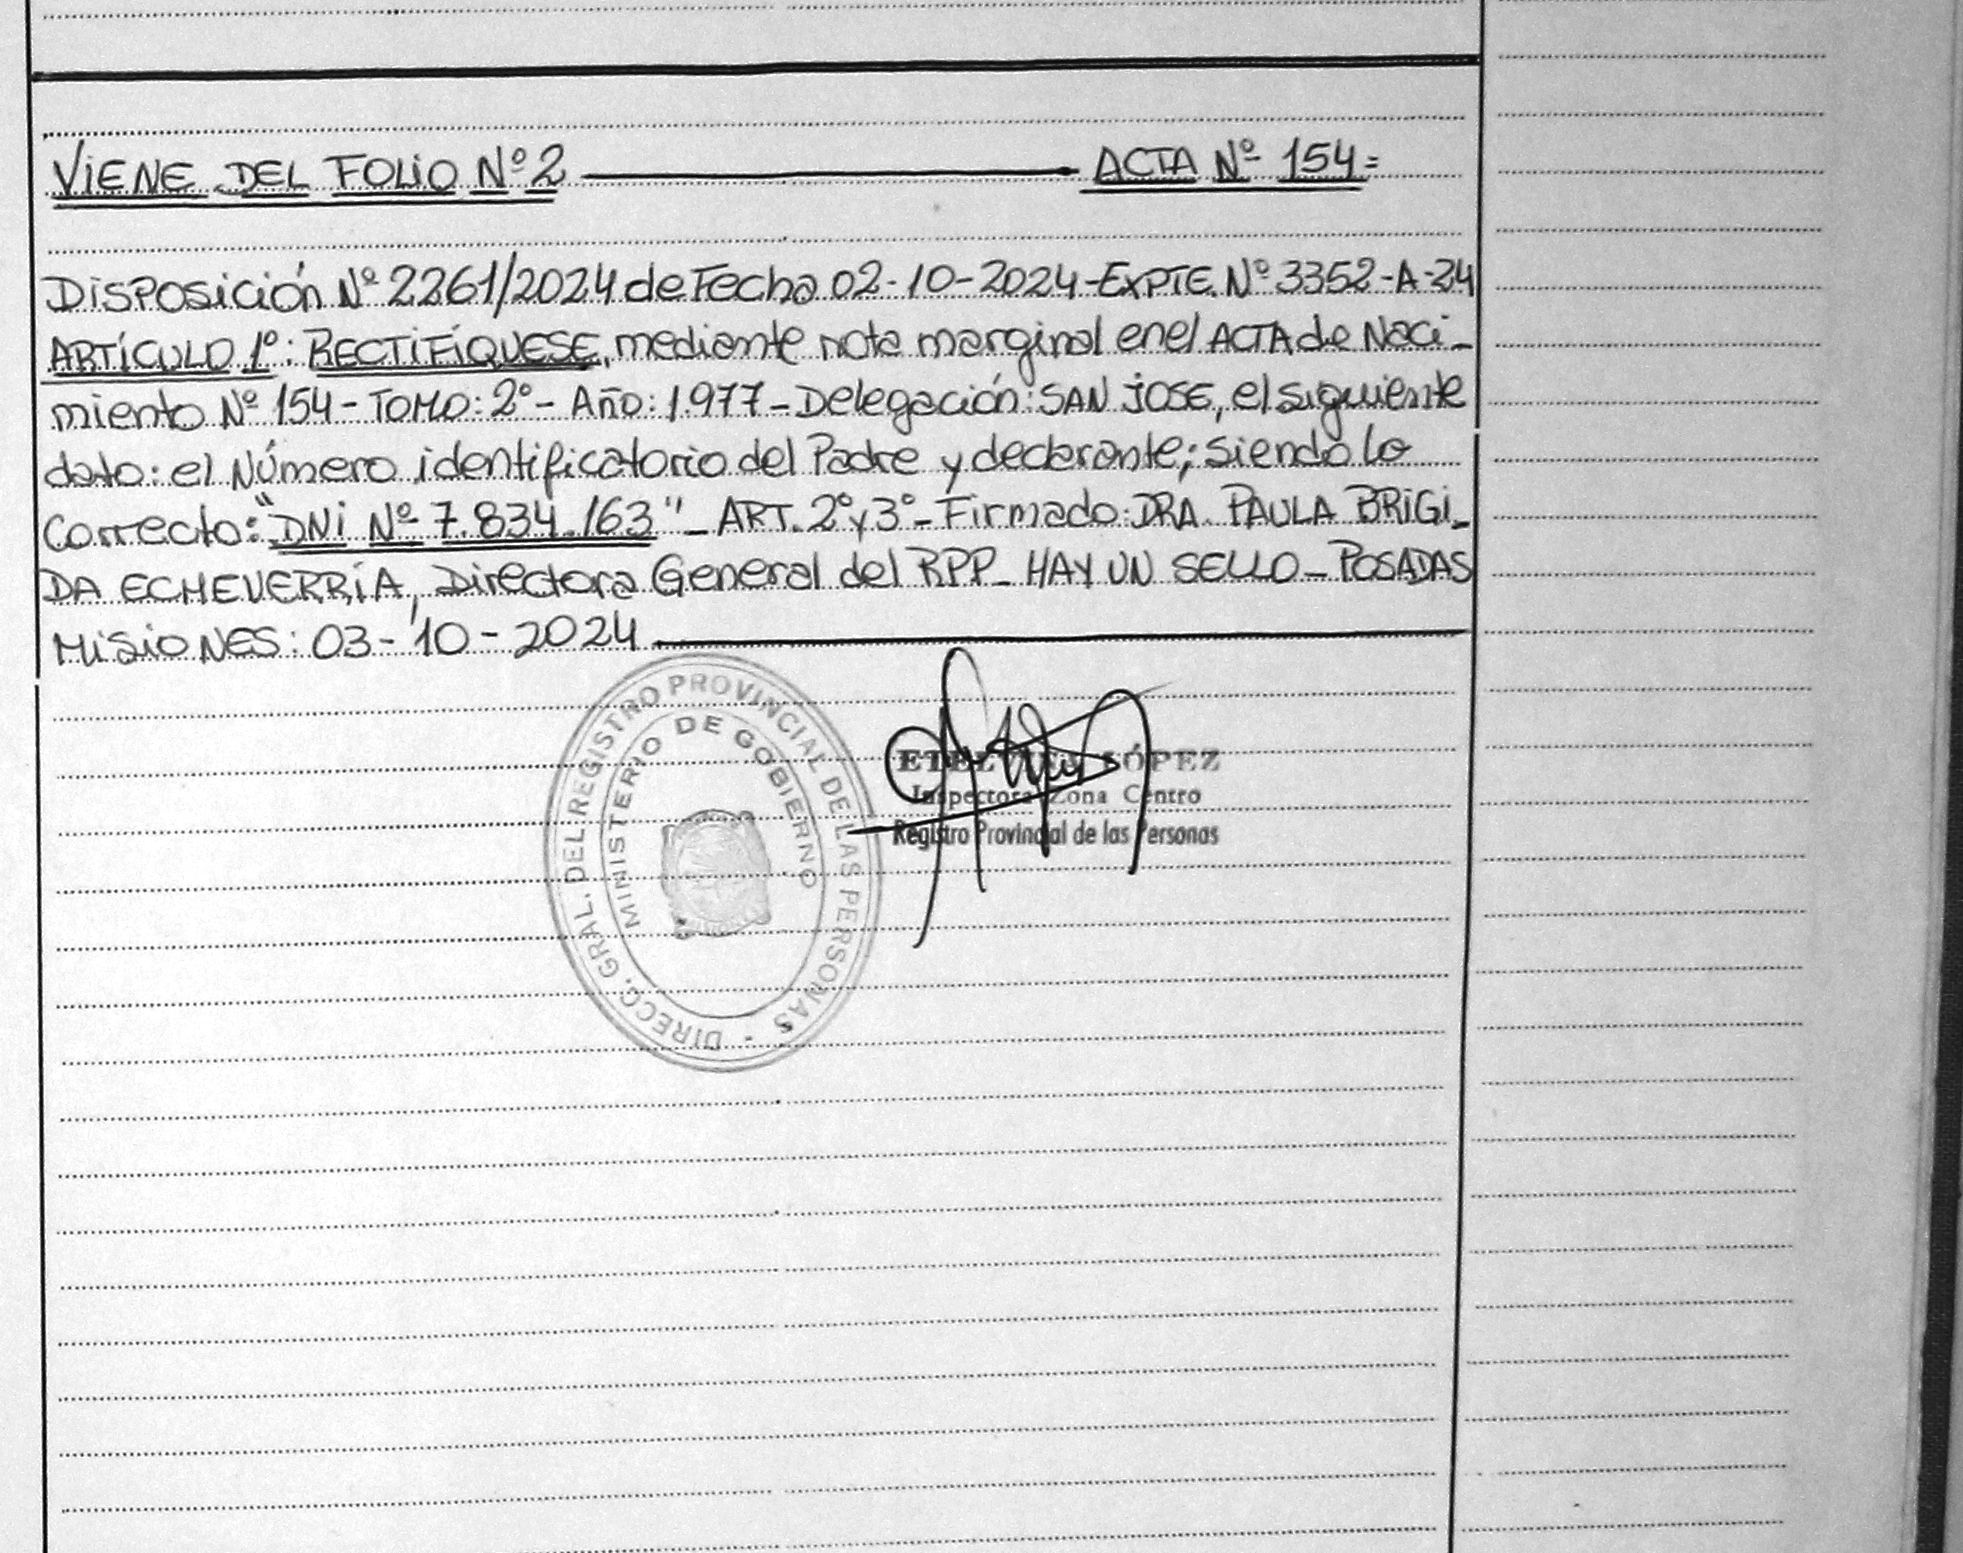 VIENE DEL FOLIO Nº 2 ACTA Nº 154=
Disposición Nº 2261/2024 de Fecha 02-10-2024-EXPTE. Nº 3352-A-24
ARTÍCULO 1º: RECTIFÍQUESE, mediante nota marginal en el ACTA de Naci-
miento Nº 154 - TOMO: 2º - Año: 1.977 - Delegación: SAN JOSE, el siguiente
dato: el Número identificatorio del Padre y declarante; siendo lo
correcto: "DNI Nº 7.834.163" - ART. 2º y 3º - Firmado: DRA. PAULA BRIGI-
DA ECHEVERRÍA, Directora General del RPP - HAY UN SELLO - POSADAS
MISIONES: 03-10-2024
DIRECC. GRAL. DEL REGISTRO PROVINCIAL DE LAS PERSONAS -
MINISTERIO DE GOBIERNO
LÓPEZ
Inspectora Zona Centro
Registro Provincial de las Personas